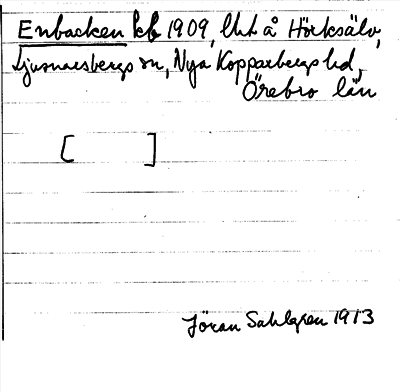 Enbacken kb 1909, lht å Hörksälv,
Ljusnarsbergs sn, Nya Kopparbergs hd,
Örebro län
[ ]
Jöran Sahlgren 1913